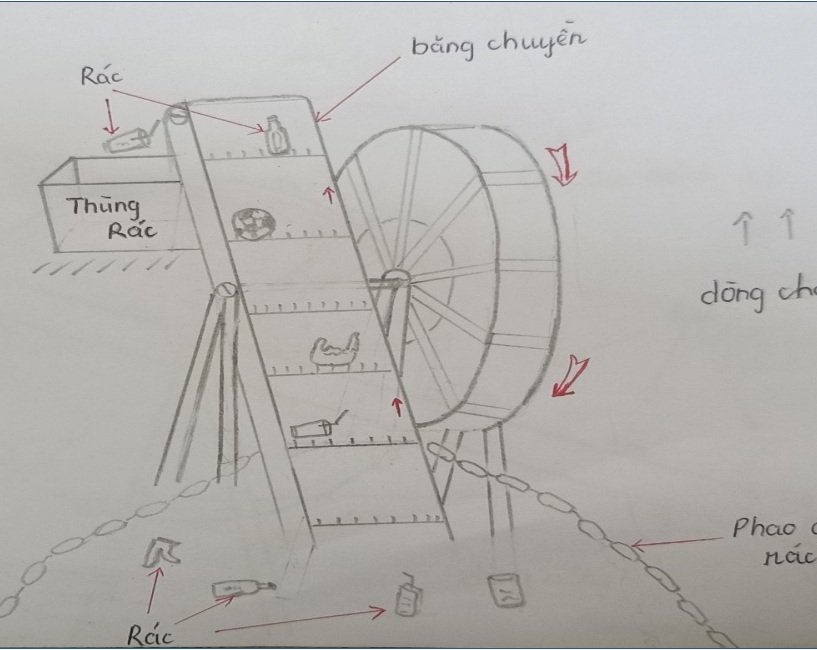 băng chuyền
Rác
Thùng
Rác
dòng
Phao
rác
Rác